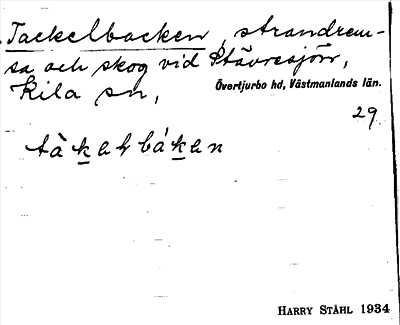 Tackelbacken, strandrem-
sa och skog vid Stävresjön,
Kila sn,
Övertjurbo hd, Västmanlands län.
29
tàkelbákan
HARRY STÅHL 1934